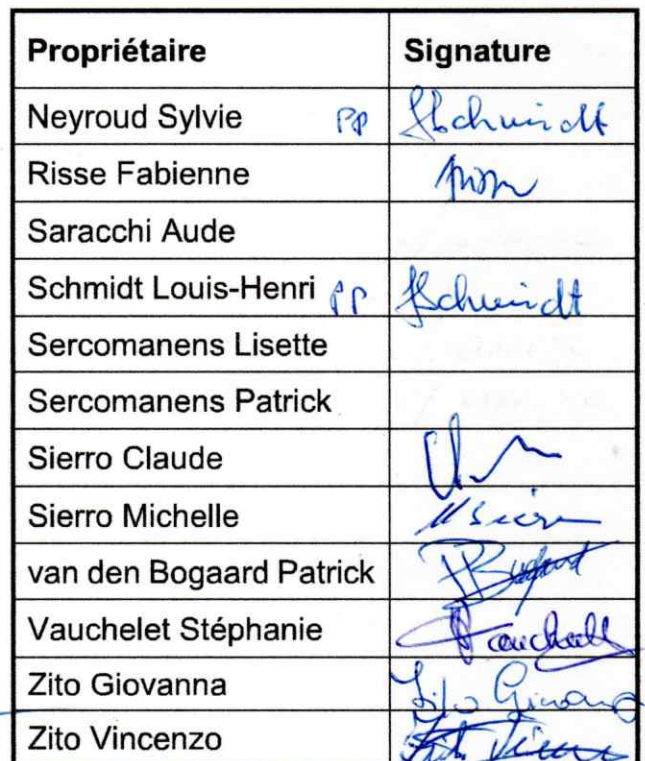 Propriétaire Signature
Neyroud Sylvie pp HSchmidt
Risse Fabienne
Saracchi Aude
Schmidt Louis-Henri pp HSchmidt
Sercomanens Lisette
Sercomanens Patrick
Sierro Claude
Sierro Michelle
van den Bogaard Patrick
Vauchelet Stéphanie
Zito Giovanna Zito Giovanna
Zito Vincenzo